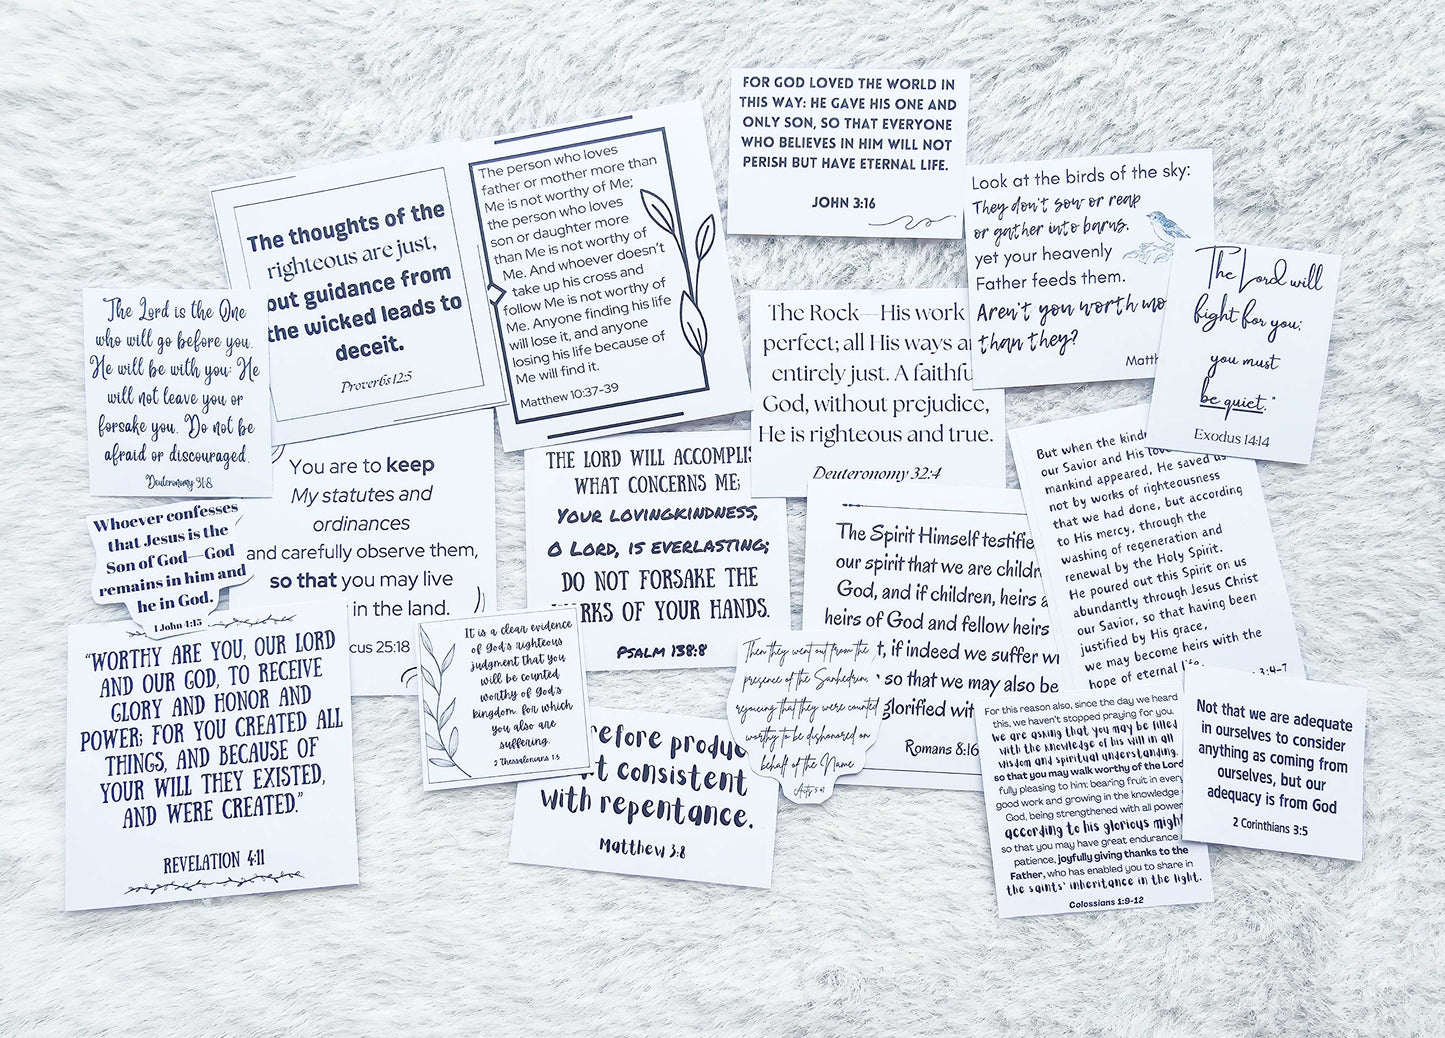 FOR GOD LOVED THE WORLD IN
THIS WAY: HE GAVE HIS ONE AND
ONLY SON, SO THAT EVERYONE
WHO BELIEVES IN HIM WILL NOT
PERISH BUT HAVE ETERNAL LIFE.
JOHN 3:16
The thoughts of the
righteous are just,
but guidance from
the wicked leads to
deceit.
Proverbs 12:5
The person who loves
father or mother more than
Me is not worthy of Me;
the person who loves
son or daughter more
than Me is not worthy of
Me. And whoever doesn't
take up his cross and
follow Me is not worthy of
Me. Anyone finding his life
will lose it, and anyone
losing his life because of
Me will find it.
Matthew 10:37-39
Look at the birds of the sky:
They don't sow or reap
or gather into barns,
yet your heavenly
Father feeds them.
Aren't you worth mo
than they?
Matth
The Lord will
fight for you;
you must
be quiet."
Exodus 14:14
The Lord is the One
who will go before you.
He will be with you; He
will not leave you or
forsake you. Do not be
afraid or discouraged.
Deuteronomy 31:8
The Rock—His work
perfect; all His ways ar
entirely just. A faithfu
God, without prejudice,
He is righteous and true.
Deuteronomy 32:4
You are to keep
My statutes and
ordinances
and carefully observe them,
so that you may live
in the land.
cus 25:18
THE LORD WILL ACCOMPLIS
WHAT CONCERNS ME;
YOUR LOVINGKINDNESS,
O LORD, IS EVERLASTING;
DO NOT FORSAKE THE
RKS OF YOUR HANDS.
PSALM 138:8
But when the kind
our Savior and His love
mankind appeared, He saved us
not by works of righteousness
that we had done, but according
to His mercy, through the
washing of regeneration and
renewal by the Holy Spirit.
He poured out this Spirit on us
abundantly through Jesus Christ
our Savior, so that having been
justified by His grace,
we may become heirs with the
hope of eternal life.
3:4-7
Whoever confesses
that Jesus is the
Son of God—God
remains in him and
he in God.
1 John 4:15
The Spirit Himself testifie
our spirit that we are childr
God, and if children, heirs a
heirs of God and fellow heirs
t, if indeed we suffer wi
so that we may also be
glorified wit
Romans 8:16
"WORTHY ARE YOU, OUR LORD
AND OUR GOD, TO RECEIVE
GLORY AND HONOR AND
POWER; FOR YOU CREATED ALL
THINGS, AND BECAUSE OF
YOUR WILL THEY EXISTED,
AND WERE CREATED."
REVELATION 4:11
It is a clear evidence
of God's righteous
judgment that you
will be counted
worthy of God's
kingdom, for which
you also are
suffering.
2 Thessalonians 1:5
Then they went out from the
presence of the Sanhedrin,
rejoicing that they were counted
worthy to be dishonored on
behalf of the Name.
Acts 5:41
refore produ
it consistent
with repentance.
Matthew 3:8
For this reason also, since the day we heard
this, we haven't stopped praying for you.
We are asking that you may be filled
with the knowledge of his will in all
wisdom and spiritual understanding,
so that you may walk worthy of the Lord
fully pleasing to him: bearing fruit in every
good work and growing in the knowledge
God, being strengthened with all power
according to his glorious might
so that you may have great endurance
patience, joyfully giving thanks to the
Father, who has enabled you to share in
the saints' inheritance in the light.
Colossians 1:9-12
Not that we are adequate
in ourselves to consider
anything as coming from
ourselves, but our
adequacy is from God
2 Corinthians 3:5